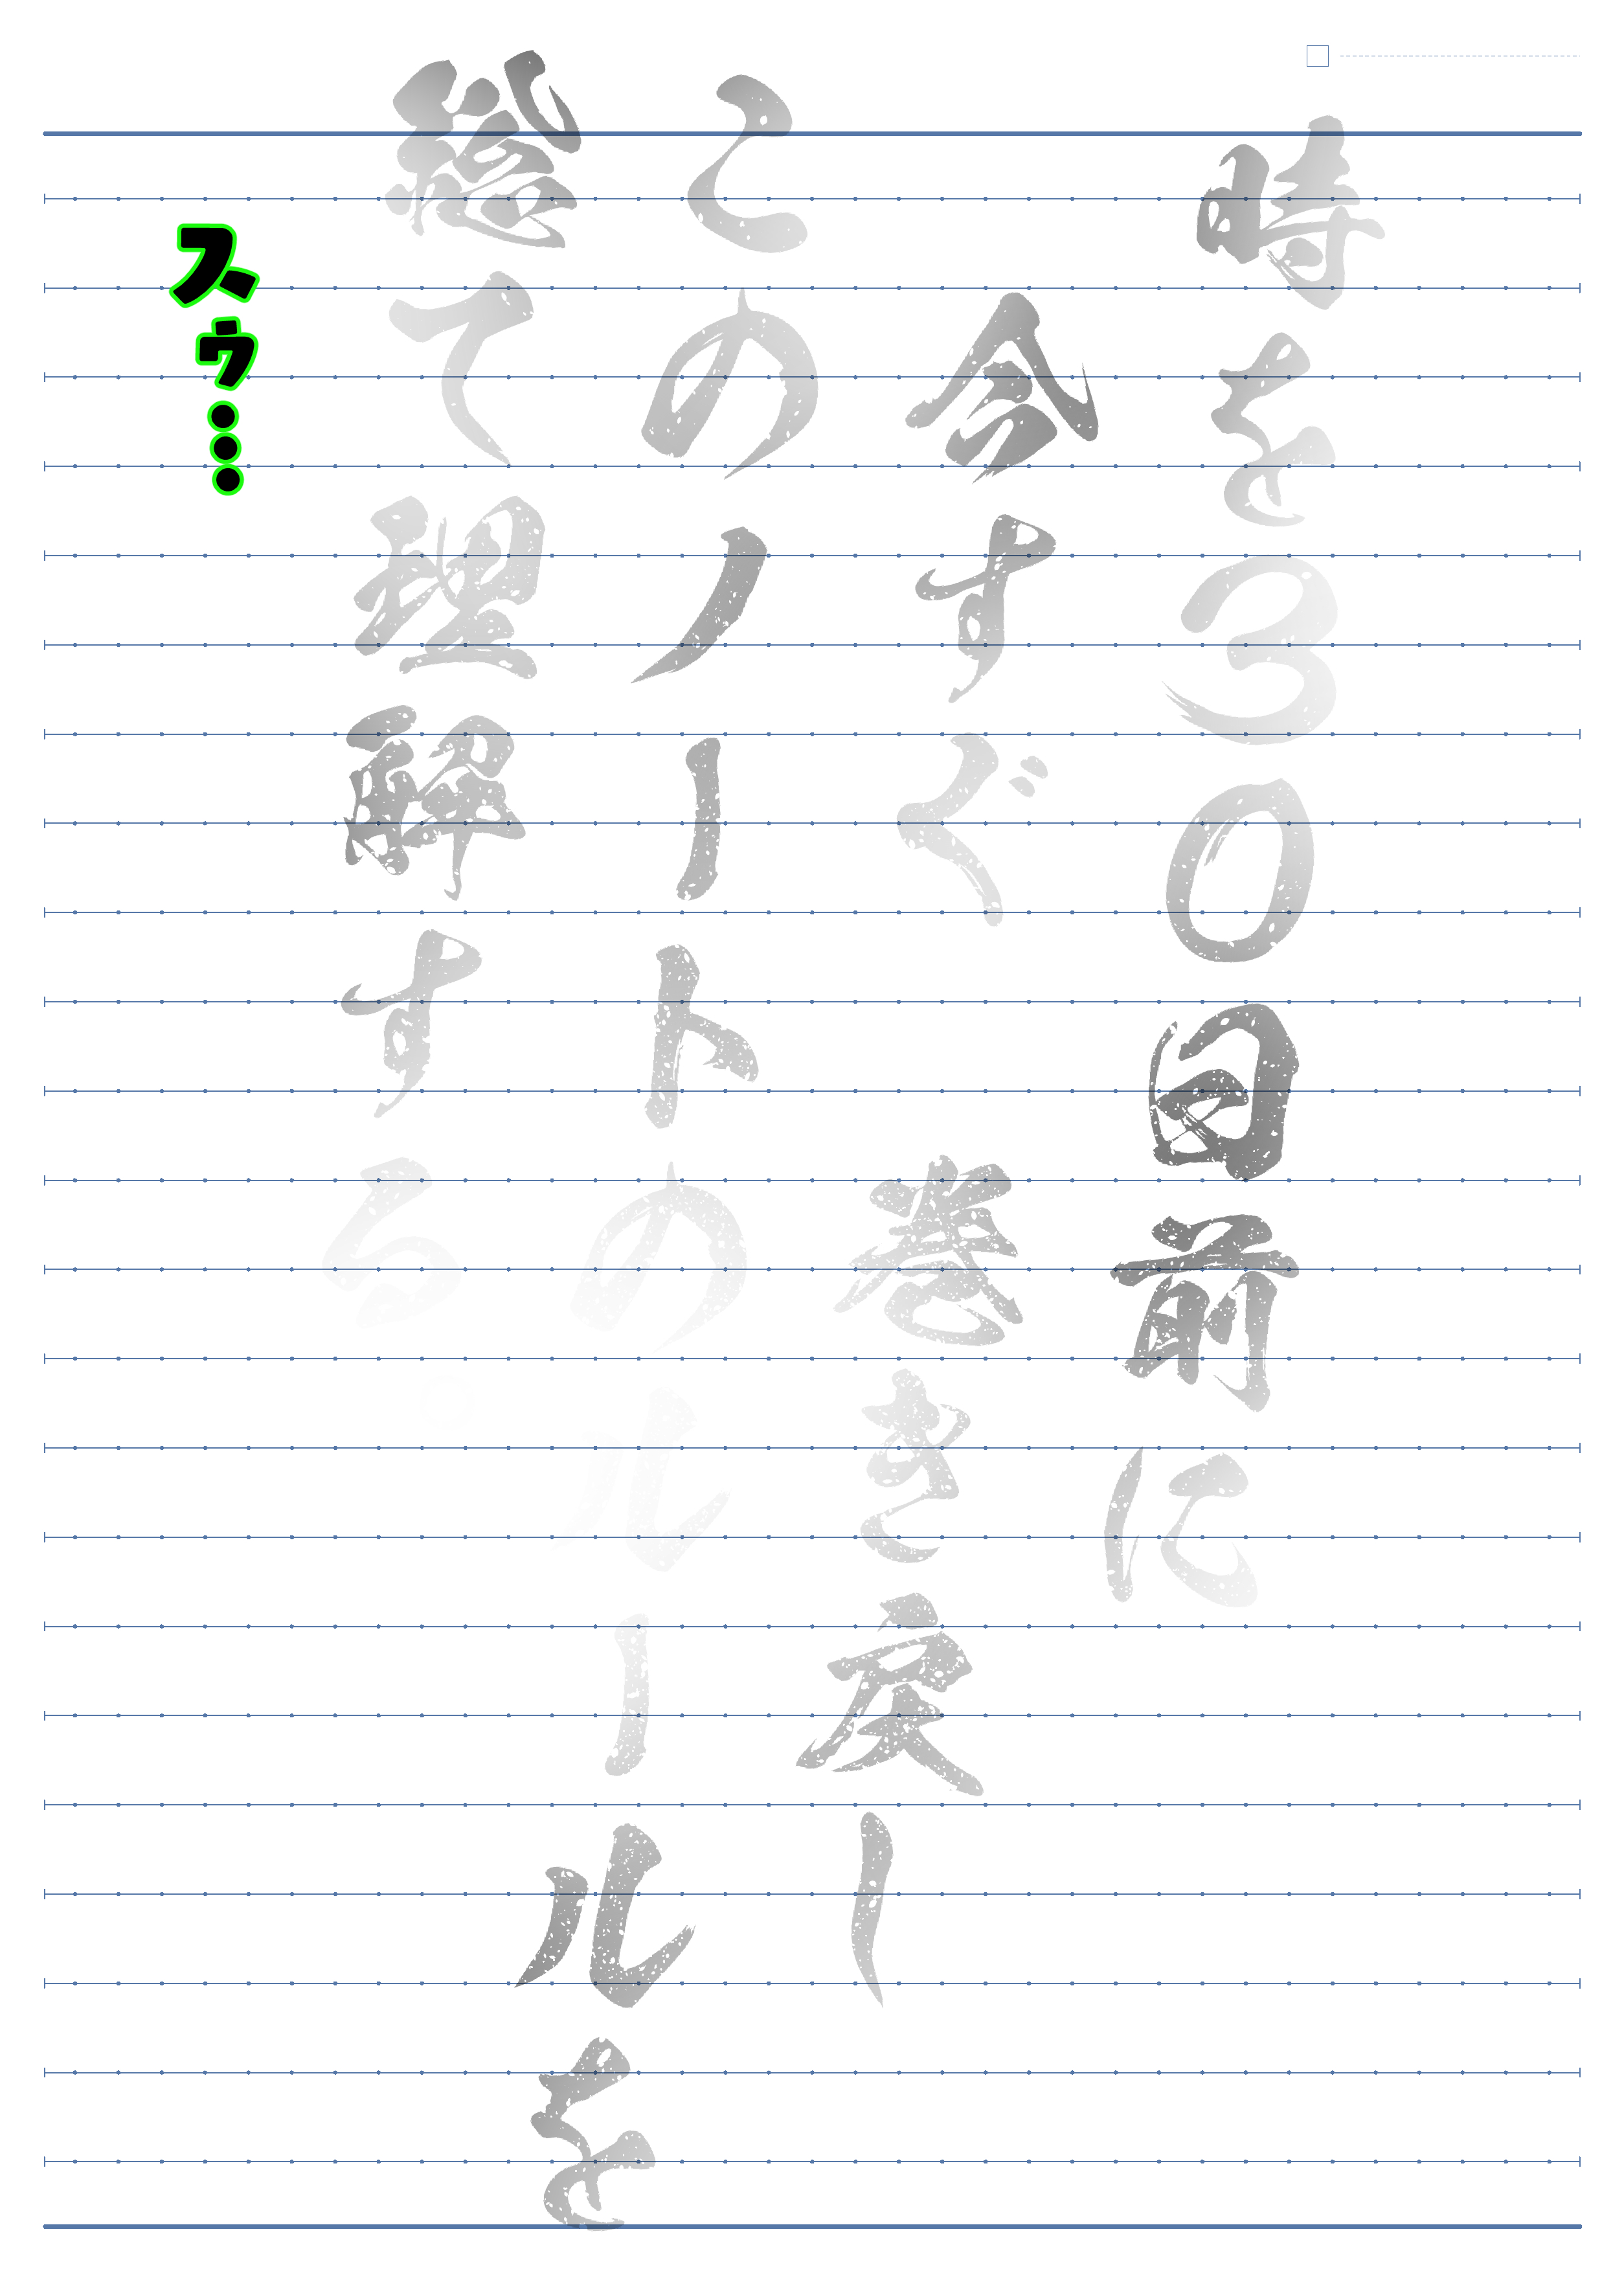 時を30日前に
今すぐ巻き戻し
このノートのルールを
総て理解する。
スゥ…